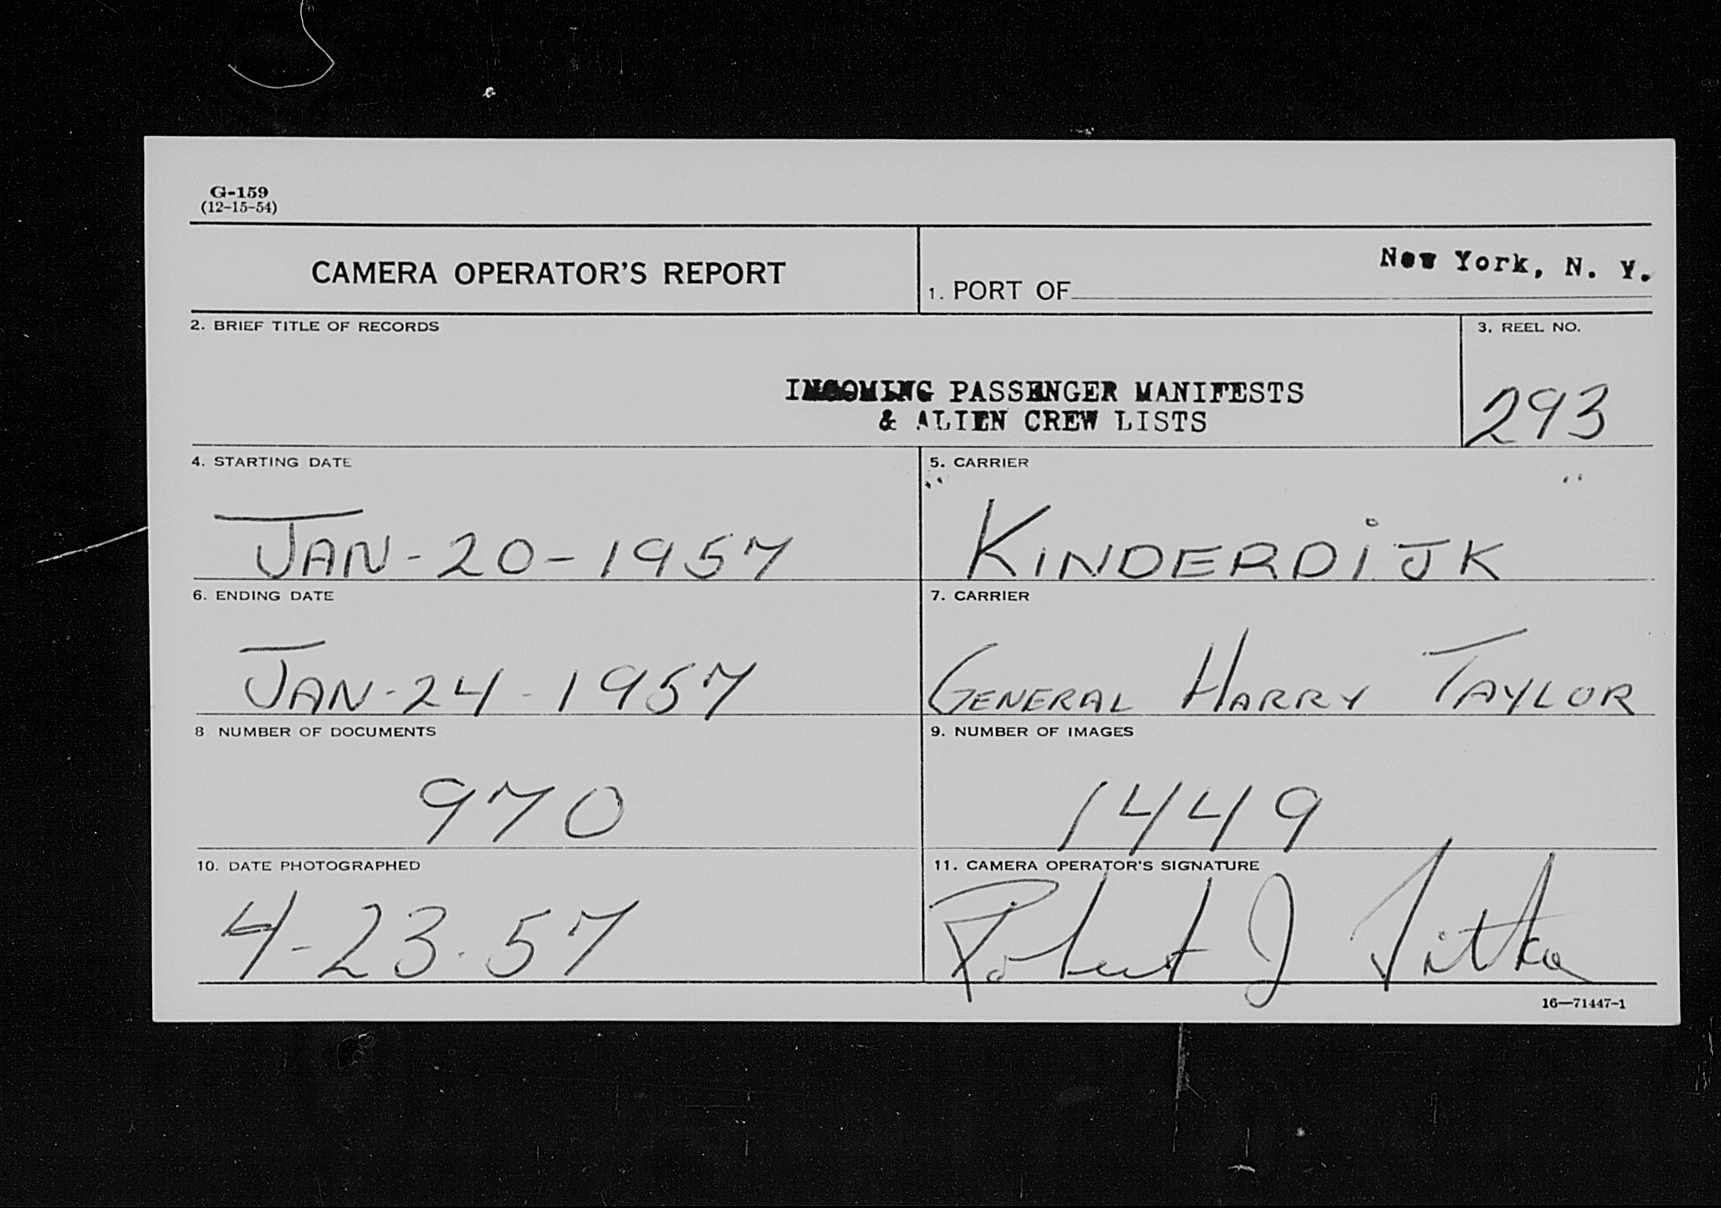 G-159
(12-15-54)
CAMERA OPERATOR'S REPORT
1. PORT OF New York, N. Y.
2. BRIEF TITLE OF RECORDS
INCOMING PASSENGER MANIFESTS
& ALIEN CREW LISTS
3. REEL NO.
293
4. STARTING DATE
JAN-20-1957
5. CARRIER
KINDERDIJK
6. ENDING DATE
JAN-24-1957
7. CARRIER
GENERAL HARRY TAYLOR
8 NUMBER OF DOCUMENTS
970
9. NUMBER OF IMAGES
1449
10. DATE PHOTOGRAPHED
4-23-57
11. CAMERA OPERATOR'S SIGNATURE
Robert J
16—71447-1